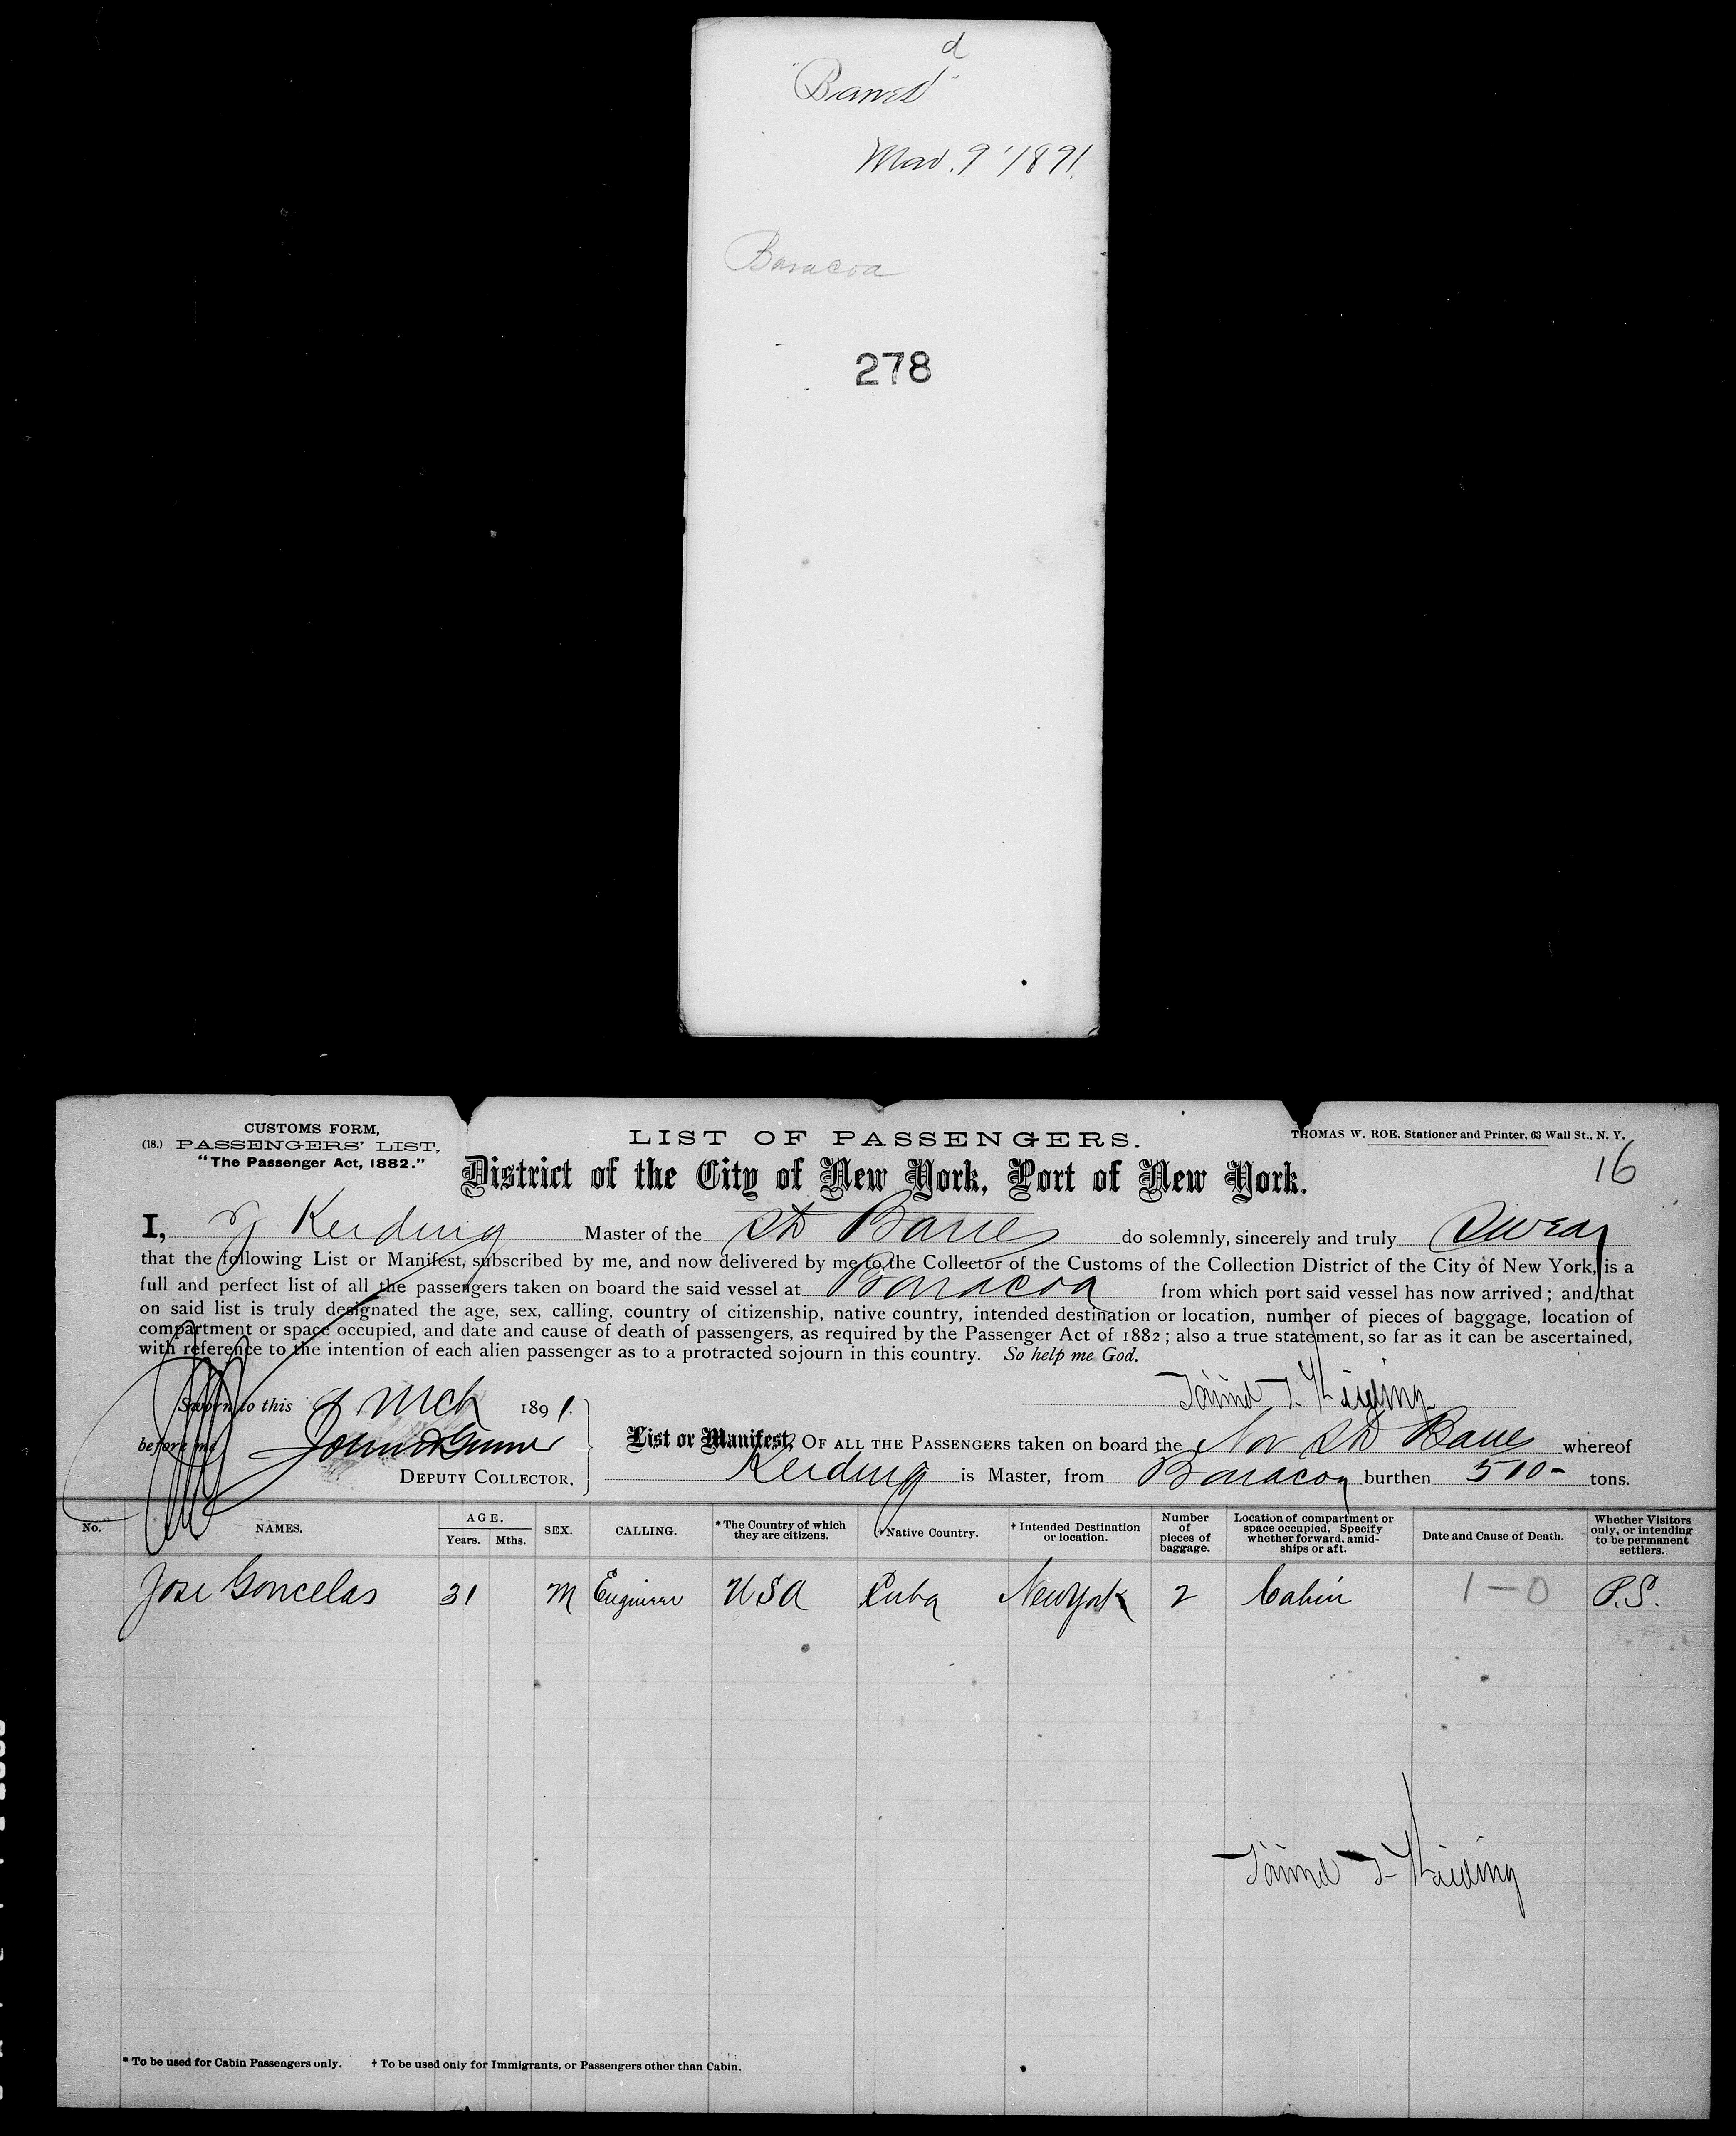 d
"Banes"
Mar. 9 '1891.
Baracoa
278
CUSTOMS FORM,
(18.) PASSENGERS' LIST,
"The Passenger Act, 1882."
LIST OF PASSENGERS.
THOMAS W. ROE. Stationer and Printer, 63 Wall St., N. Y.
16
District of the City of New York, Port of New York.
I, Keiding Master of the Banes do solemnly, sincerely and truly Swear
that the following List or Manifest, subscribed by me, and now delivered by me to the Collector of the Customs of the Collection District of the City of New York, is a
full and perfect list of all the passengers taken on board the said vessel at Baracoa from which port said vessel has now arrived ; and that
on said list is truly designated the age, sex, calling, country of citizenship, native country, intended destination or location, number of pieces of baggage, location of
compartment or space occupied, and date and cause of death of passengers, as required by the Passenger Act of 1882 ; also a true statement, so far as it can be ascertained,
with reference to the intention of each alien passenger as to a protracted sojourn in this country. So help me God.
Sworn to this 9 Mch 1891.
before me
DEPUTY COLLECTOR.
List or Manifest, OF ALL THE PASSENGERS taken on board the Nor Banes whereof
Keiding is Master, from Baracoa burthen 510- tons.
No. NAMES. AGE. Years. Mths. SEX. CALLING. *The Country of which they are citizens. †Native Country. †Intended Destination or location. Number of pieces of baggage. Location of compartment or space occupied. Specify whether forward, amidships or aft. Date and Cause of Death. Whether Visitors only, or intending to be permanent settlers.
Jose Goncelas 31 M Engineer USA Cuba New York 2 Cabin 1-0 P.S.
* To be used for Cabin Passengers only. † To be used only for Immigrants, or Passengers other than Cabin.